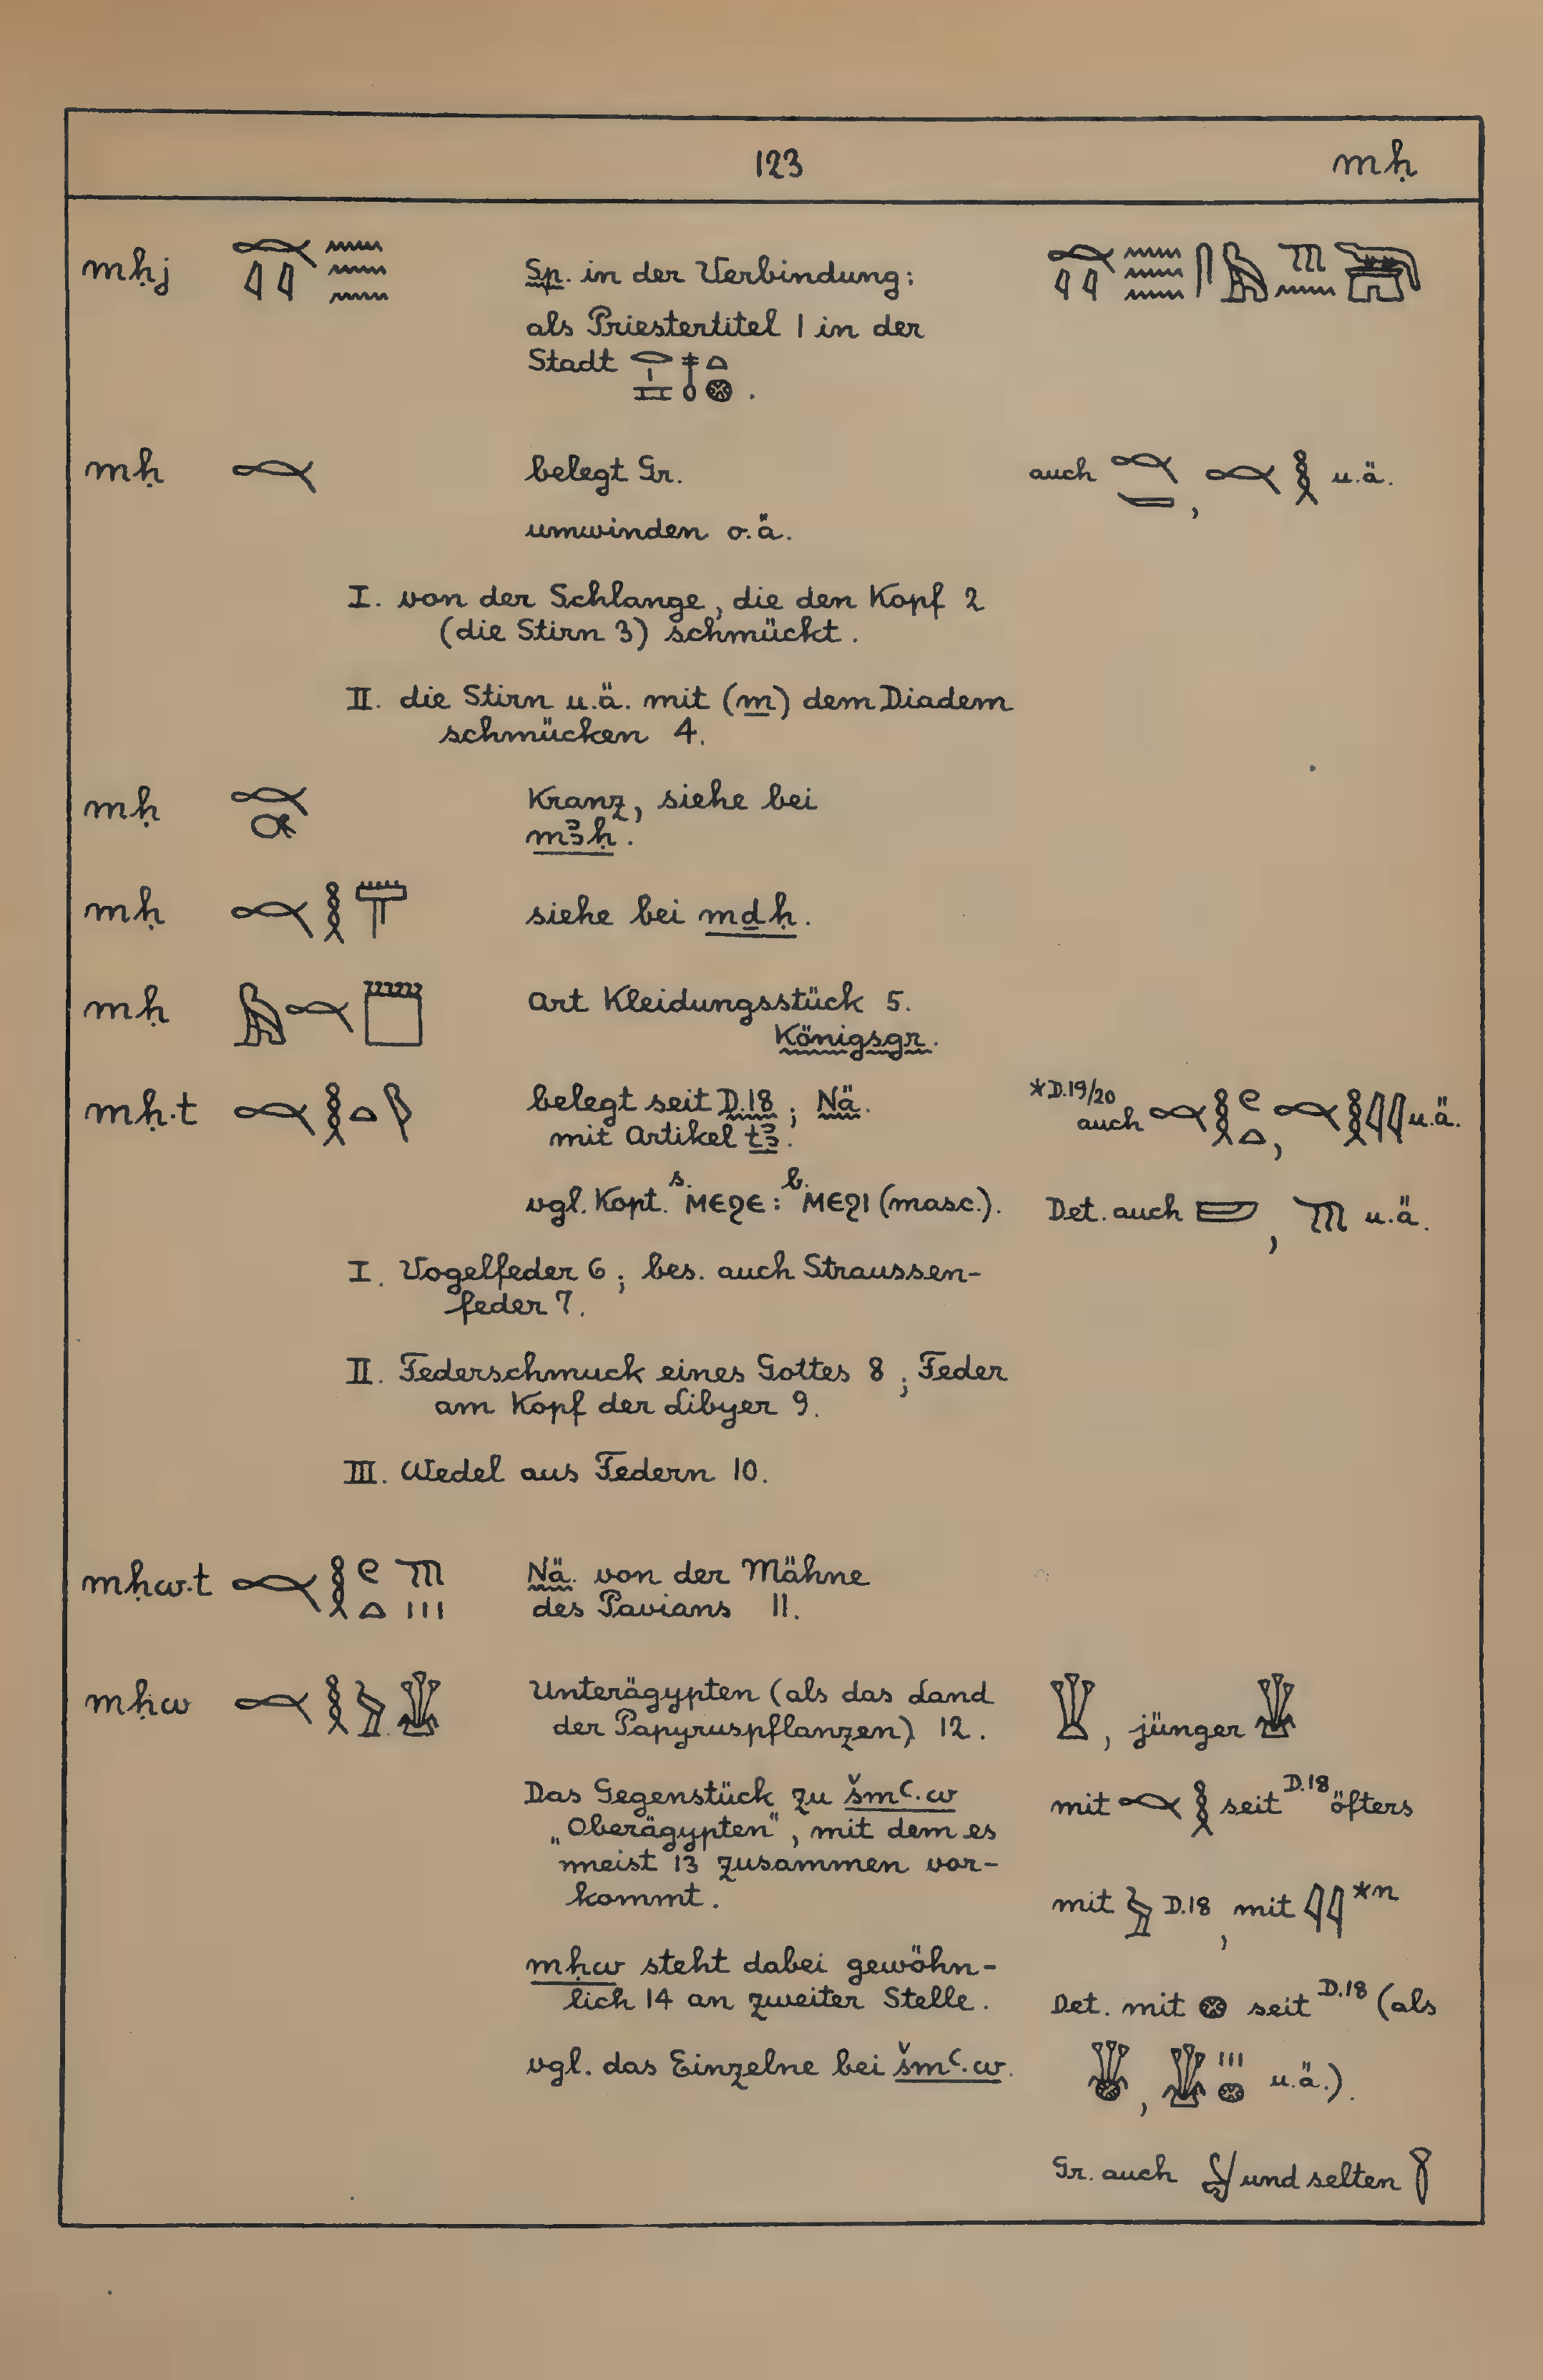 123 mḥ
mḥj Sp. in der Verbindung:
als Priestertitel 1 in der
Stadt .
mḥ belegt Gr. auch , u.ä.
umwinden o.ä.
I. von der Schlange, die den Kopf 2
(die Stirn 3) schmückt.
II. die Stirn u.ä. mit (m) dem Diadem
schmücken 4.
mḥ Kranz, siehe bei
mꜣḥ.
mḥ siehe bei mḏḥ.
mḥ Art Kleidungsstück 5.
Königsgr.
mḥ·t belegt seit D.18; Nä. *D.19/20 auch , u.ä.
mit Artikel tꜣ.
vgl. Kopt. s. ⲙⲉϩⲉ: b. ⲙⲉϩⲓ (masc.). Det. auch , u.ä.
I. Vogelfeder 6; bes. auch Straussen-
feder 7.
II. Federschmuck eines Gottes 8; Feder
am Kopf der Libyer 9.
III. Wedel aus Federn 10.
mḥw·t Nä. von der Mähne
des Pavians 11.
mḥw Unterägypten (als das Land
der Papyruspflanzen) 12. , jünger
Das Gegenstück zu šmꜥ·w mit seit D.18 öfters
„Oberägypten", mit dem es
meist 13 zusammen vor-
kommt. mit D.18, mit *n
mḥw steht dabei gewöhn-
lich 14 an zweiter Stelle. Det. mit seit D.18 (als
vgl. das Einzelne bei šmꜥ·w. , u.ä.).
Gr. auch und selten